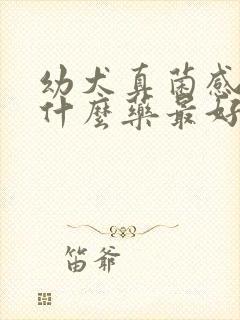 幼犬真菌感
什麼藥最好
笛爷